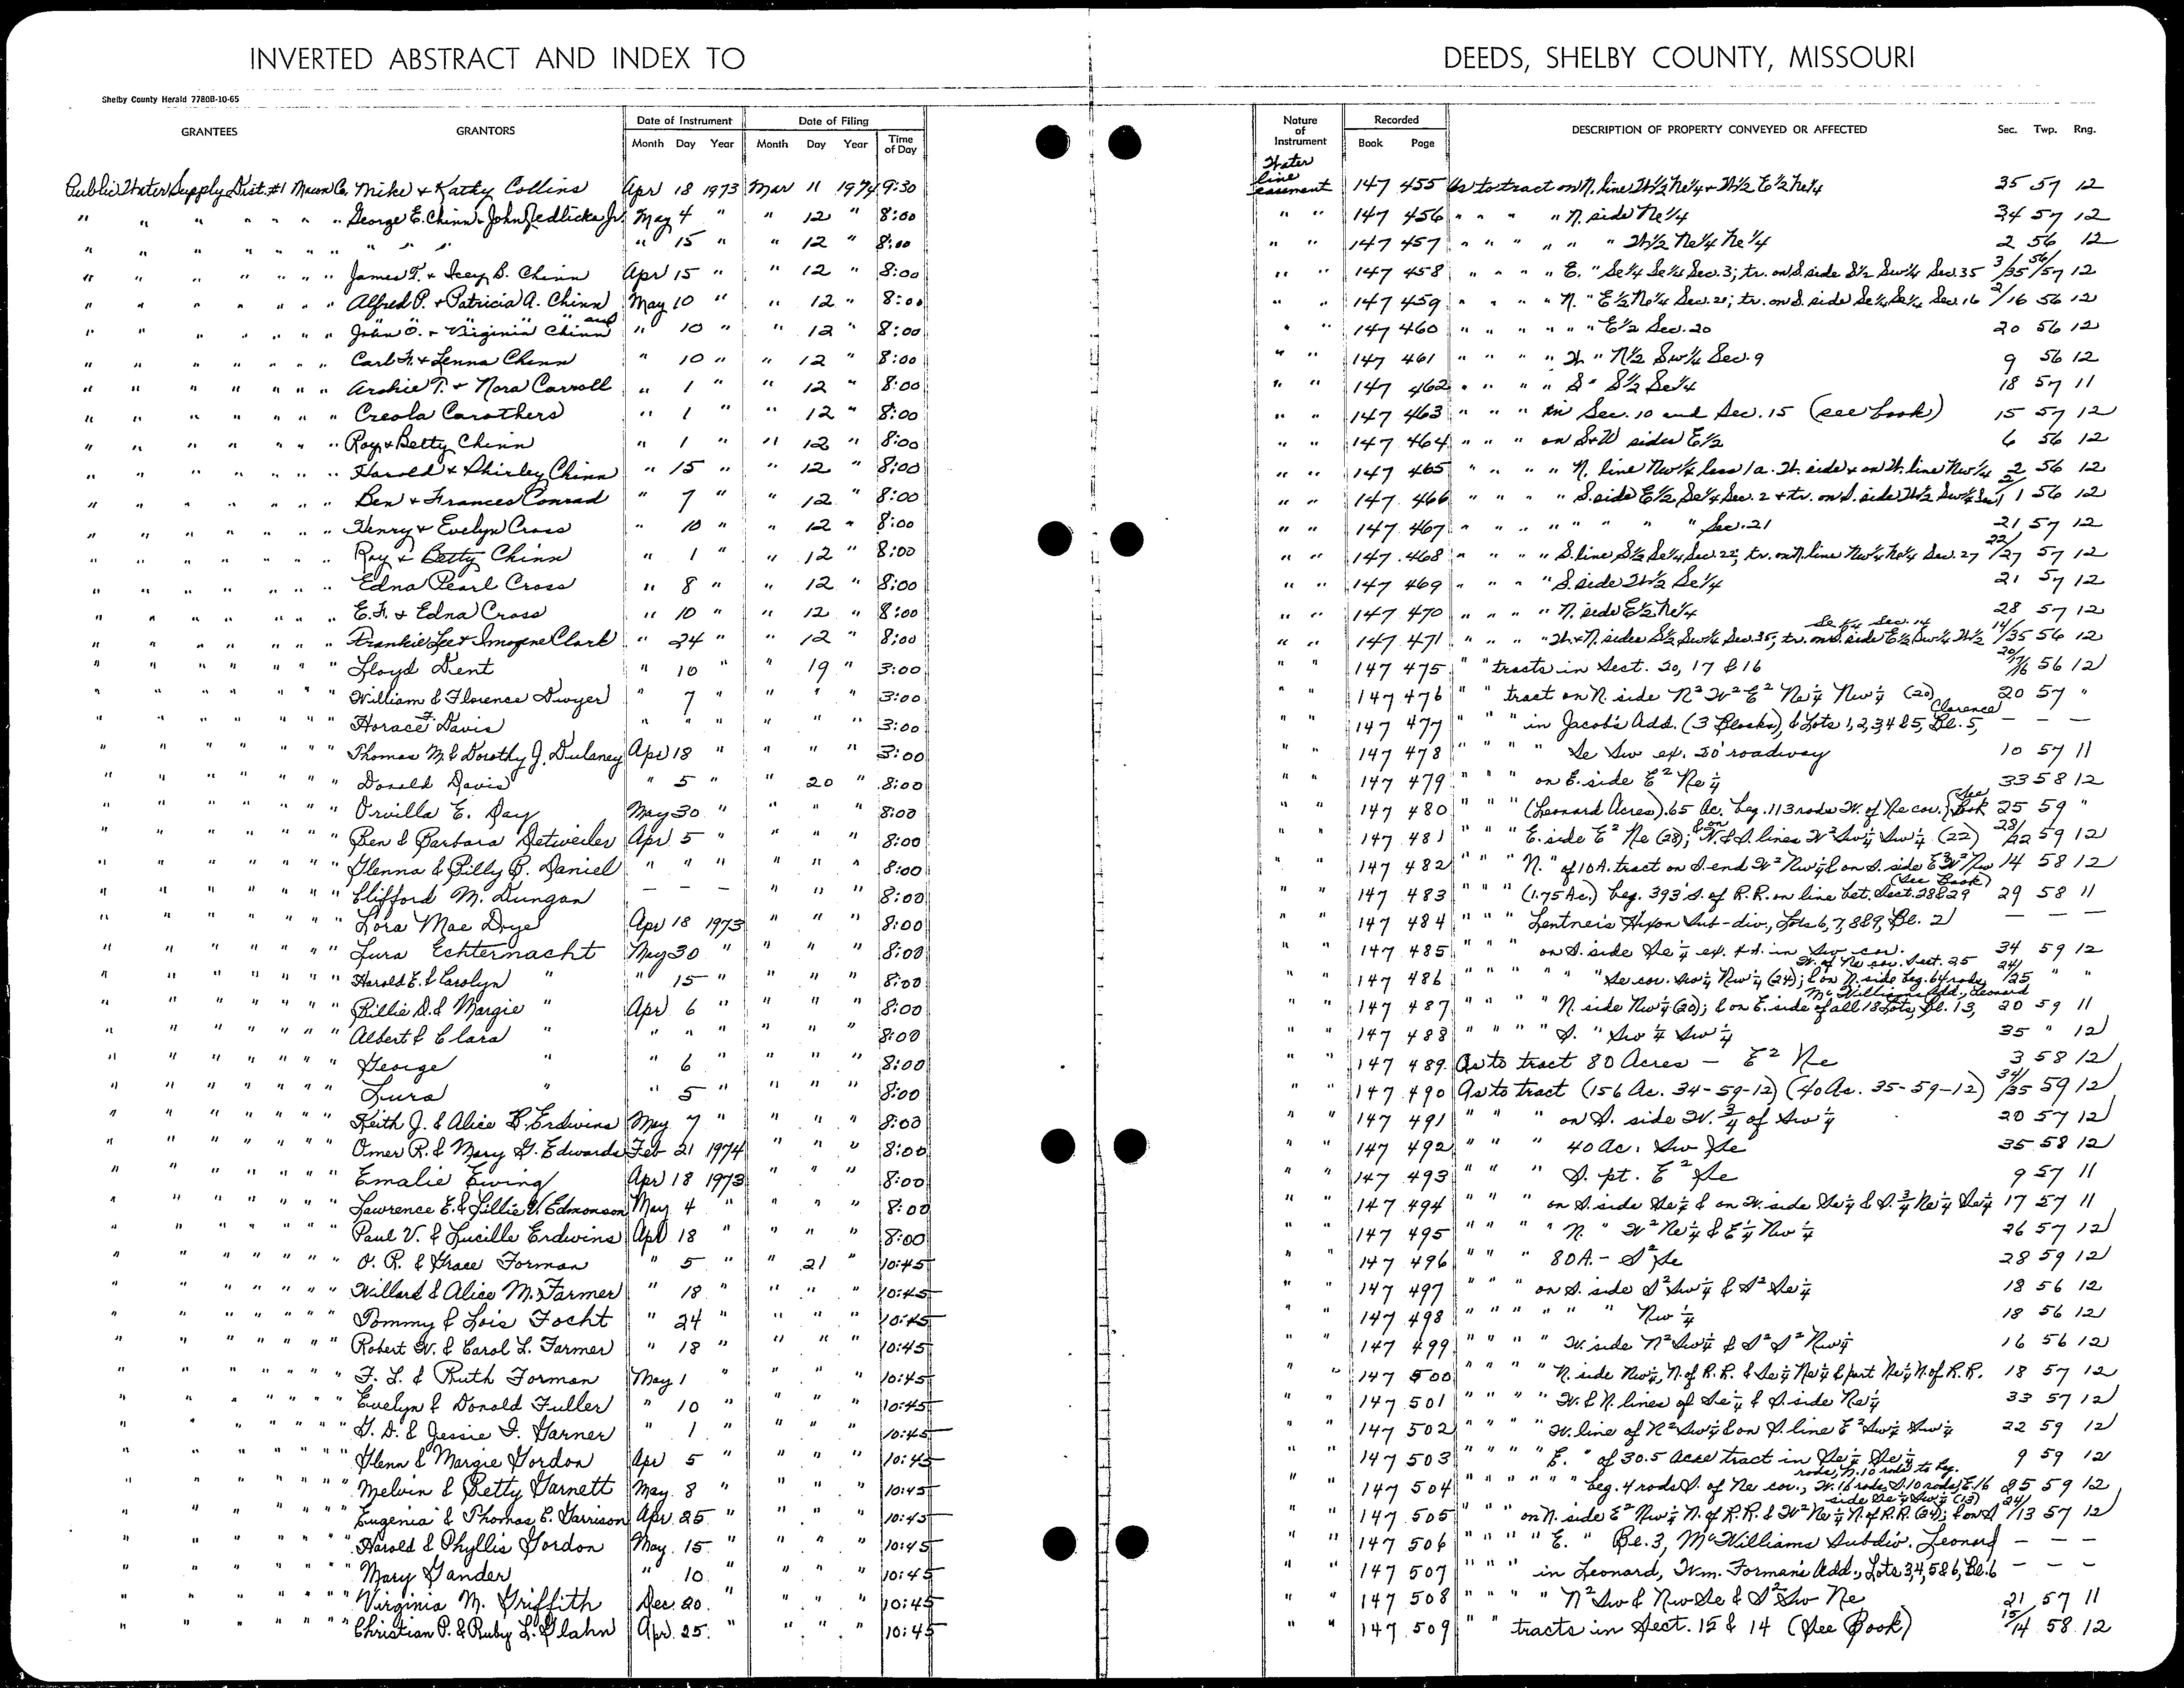 INVERTED ABSTRACT AND INDEX TO DEEDS, SHELBY COUNTY, MISSOURI
Shelby County Herald 7780B-10-65
GRANTEES GRANTORS Date of Instrument Date of Filing Nature of Instrument Recorded DESCRIPTION OF PROPERTY CONVEYED OR AFFECTED Sec. Twp. Rng.
Month Day Year Month Day Year Time of Day Book Page
Public Water Supply Dist. #1 Macon Co. Mike & Kathy Collins Apr 18 1973 Mar 11 1974 9:30 Water line easement 147 455 As to tract on N. line W½ Ne¼ & W½ E½ Ne¼ 35 57 12
" " " " " " George E. Chinn & John Jedlicka Jr. May 4 " " 12 " 8:00 " " 147 456 " " " " N. side Ne¼ 34 57 12
" " " " " " " " " " 15 " " 12 " 8:00 " " 147 457 " " " " " " W½ Ne¼ Ne¼ 2 56 12
" " " " " " James T. & Icey B. Chinn Apr 15 " " 12 " 8:00 " " 147 458 " " " " E. " Se¼ Se¼ Sec. 3; tr. on S. side S½ Sw¼ Sec. 35 3/35 56/57 12
" " " " " " Alfred P. & Patricia A. Chinn May 10 " " 12 " 8:00 " " 147 459 " " " " N. " E½ Ne¼ Sec. 21; tr. on S. side Se¼ Se¼ Sec. 16 2/16 56 12
" " " " " " John O. & Virginia Chinn and " 10 " " 12 " 8:00 " " 147 460 " " " " " " E½ Sec. 20 20 56 12
" " " " " " Carl F. & Lenna Chinn " 10 " " 12 " 8:00 " " 147 461 " " " " W. " N½ Sw¼ Sec. 9 9 56 12
" " " " " " Archie T. & Nora Carroll " 1 " " 12 " 8:00 " " 147 462 " " " " S. " S½ Se¼ 18 57 11
" " " " " " Creola Carothers " 1 " " 12 " 8:00 " " 147 463 " " " in Sec. 10 and Sec. 15 (see book) 15 57 12
" " " " " " Roy & Betty Chinn " 1 " " 12 " 8:00 " " 147 464 " " " on S & W sides E½ 6 56 12
" " " " " " Harold & Shirley Chinn " 15 " " 12 " 8:00 " " 147 465 " " " " N. line Nw¼ less 1 a. W. side & on W. line Nw¼ 2 56 12
" " " " " " Ben & Frances Conrad " 7 " " 12 " 8:00 " " 147 466 " " " " S. side E½ Se¼ Sec. 2 & tr. on S. side W½ Sw¼ Sec 1 2/1 56 12
" " " " " " Henry & Evelyn Cross " 10 " " 12 " 8:00 " " 147 467 " " " " " " " Sec. 21 21 57 12
" " " " " " Roy & Betty Chinn " 1 " " 12 " 8:00 " " 147 468 " " " " S. line S½ Se¼ Sec. 22; tr. on N. line Nw¼ Ne¼ Sec. 27 22/27 57 12
" " " " " " Edna Pearl Cross " 8 " " 12 " 8:00 " " 147 469 " " " " S. side W½ Se¼ 21 57 12
" " " " " " E.F. & Edna Cross " 10 " " 12 " 8:00 " " 147 470 " " " " N. side E½ Ne¼ 28 57 12
" " " " " " Frankie Lee & Imogene Clark " 24 " " 12 " 8:00 " " 147 471 " " " " W. & N. sides S½ Sw¼ Sec. 35; tr. on S. side E½ Sw¼ W½ Se¼ Sec. 14 14/35 56 12
" " " " " " Lloyd Dent " 10 " " 19 " 3:00 " " 147 475 " " tracts in Sect. 20, 17 & 16 20/17/16 56 12
" " " " " " William & Florence Dwyer " 7 " " " " 3:00 " " 147 476 " " tract on N. side N² W² E² Ne¼ Nw¼ (20) 20 57 "
" " " " " " Horace F. Davis " " " " " " 3:00 " " 147 477 " " " in Jacob's Add. (3 Blocks), & Lots 1,2,3,4&5, Bl. 5, Clarence — — —
" " " " " " Thomas M. & Dorothy J. Dulaney Apr 18 " " " " 3:00 " " 147 478 " " " " Se Sw ex. 20' roadway 10 57 11
" " " " " " Donald Davis " 5 " " 20 " 8:00 " " 147 479 " " " on E. side E² Ne¼ 33 58 12
" " " " " " Orvilla E. Day May 30 " " " " 8:00 " " 147 480 " " " (Leonard Acres) .65 Ac. beg. 113 rods W. of Ne cor. (See Book 25 59 "
" " " " " " Ben & Barbara Detweiler Apr 5 " " " " 8:00 " " 147 481 " " " E. side E² Ne (28); & on N. & S. lines W² Sw¼ Sw¼ (22) 28/22 59 12
" " " " " " Glenna & Billy B. Daniel " " " " " " 8:00 " " 147 482 " " " N. " of 10 A. tract on S. end W² Nw¼ & on S. side E² W² Nw 14 58 12
" " " " " " Clifford M. Dungan — — — " " " 8:00 " " 147 483 " " " (1.75 Ac.) beg. 393' S. of R.R. on line bet. Sect. 28 & 29 (See Book) 29 58 11
" " " " " " Lora Mae Dye Apr 18 1973 " " " 8:00 " " 147 484 " " " Lentner's Hixon Sub-div., Lots 6,7,8&9, Bl. 2 — — —
" " " " " " Lura Echternacht May 30 " " " " 8:00 " " 147 485 " " " on S. side Se¼ ex. in Sw cor. 34 59 12
" " " " " " Harold E. & Carolyn " " 15 " " " " 8:00 " " 147 486 " " " " " Se cor. Sw¼ Nw¼ (24); & on N. side beg. 64 rods W. of Ne cor. Sect. 25 24/25 " "
" " " " " " Billie D. & Margie " Apr 6 " " " " 8:00 " " 147 487 " " " " N. side Nw¼ (20); & on E. side of all 18 Lots, Bl. 13, McWilliams Add., Leonard 20 59 11
" " " " " " Albert & Clara " " " " " " " 8:00 " " 147 488 " " " " S. " Sw¼ Sw¼ 35 " 12
" " " " " " George " " 6 " " " " 8:00 " " 147 489 As to tract 80 Acres — E² Ne 3 58 12
" " " " " " Lura " " 5 " " " " 8:00 " " 147 490 As to tract (156 Ac. 34-59-12) (40 Ac. 35-59-12) 34/35 59 12
" " " " " " Keith J. & Alice B. Erdwins May 7 " " " " 8:00 " " 147 491 " " " on S. side W. ¾ of Sw¼ 20 57 12
" " " " " " Omer R. & Mary G. Edwards Feb 21 1974 " " " 8:00 " " 147 492 " " " 40 Ac. Sw Se 35 58 12
" " " " " " Emalie Ewing Apr 18 1973 " " " 8:00 " " 147 493 " " " S. pt. E² Se 9 57 11
" " " " " " Lawrence E. & Lillie V. Edmonson May 4 " " " " 8:00 " " 147 494 " " " on S. side Se¼ & on W. side Se¼ & S. ¾ Ne¼ Se¼ 17 57 11
" " " " " " Paul V. & Lucille Erdwins Apl 18 " " " " 8:00 " " 147 495 " " " " N. " W² Ne¼ & E¼ Nw¼ 26 57 12
" " " " " " O. R. & Grace Forman " 5 " " 21 " 10:45 " " 147 496 " " " 80 A. - S² Se 28 59 12
" " " " " " Willard & Alice M. Farmer " 18 " " " " 10:45 " " 147 497 " " " on S. side S² Sw¼ & S² Se¼ 18 56 12
" " " " " " Tommy & Lois Focht " 24 " " " " 10:45 " " 147 498 " " " " " " Nw¼ 18 56 12
" " " " " " Robert W. & Carol L. Farmer " 18 " " " " 10:45 " " 147 499 " " " " W. side N² Sw¼ & S² S² Nw¼ 16 56 12
" " " " " " F. L. & Ruth Forman May 1 " " " " 10:45 " " 147 500 " " " " N. side Nw¼, N. of R.R. & Se¼ Ne¼ & part Ne¼ N. of R.R. 18 57 12
" " " " " " Evelyn & Donald Fuller " 10 " " " " 10:45 " " 147 501 " " " " W. & N. lines of Se¼ & S. side Ne¼ 33 57 12
" " " " " " G. D. & Jessie I. Garner " 1 " " " " 10:45 " " 147 502 " " " " W. line of N² Sw¼ & on S. line E² Sw¼ Sw¼ 22 59 12
" " " " " " Glenn & Margie Gordon Apr 5 " " " " 10:45 " " 147 503 " " " " E. " of 30.5 Acre tract in Se¼ Se¼ 9 59 12
" " " " " " Melvin & Betty Garnett May 8 " " " " 10:45 " " 147 504 " " " " " beg. 4 rods S. of Ne cor., W. 16 rods, S. 10 rods, E. 16 rods, N. 10 rods to beg. 25 59 12
" " " " " " Eugenia & Thomas C. Garrison Apr 25 " " " " 10:45 " " 147 505 " " " on N. side E² Nw¼ N. of R.R. & W² Ne¼ N. of R.R. (24); & on S. side Se¼ Sw¼ (13) 24/13 57 12
" " " " " " Harold & Phyllis Gordon May 15 " " " " 10:45 " " 147 506 " " " " E. " Bl. 3, McWilliams Subdiv. Leonard — — —
" " " " " " Mary Gander " 10 " " " " 10:45 " " 147 507 " " " in Leonard, Wm. Forman's Add., Lots 3,4,5&6, Bl. 6 — — —
" " " " " " Virginia M. Griffith Dec. 20 " " " " 10:45 " " 147 508 " " " " N² Sw & Nw Se & S² Sw Ne 21 57 11
" " " " " " Christian P. & Ruby L. Glahn Apr. 25 " " " " 10:45 " " 147 509 " " tracts in Sect. 15 & 14 (See Book) 15/14 58 12